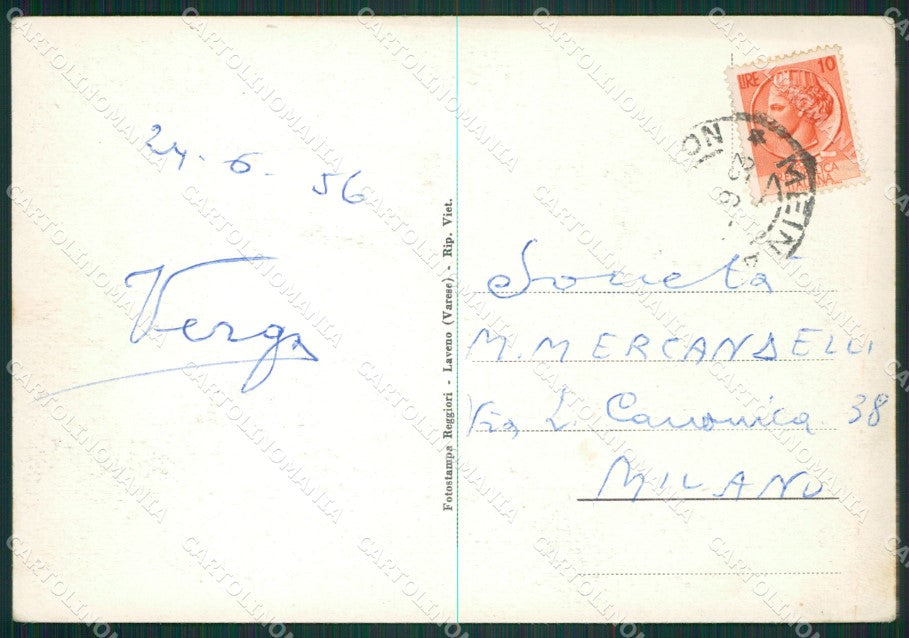 24-6-56
Verga
Fotostampa Reggiori - Laveno (Varese) - Rip. Viet.
LIRE 10
MEINA
Società
M. MERCANDELLI
Via L. Canonica 38
MILANO
CARTOLINOMANIA